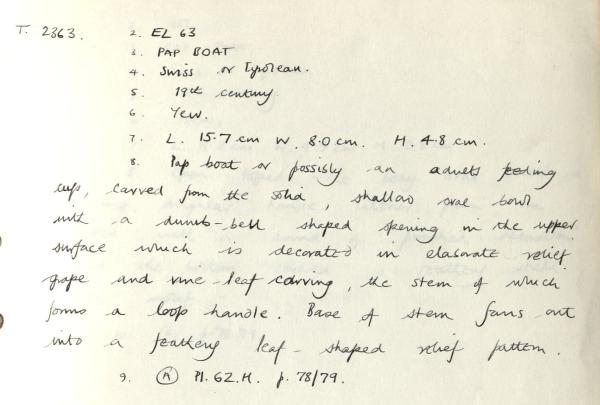 T. 2363. 2. EL 63
3. PAP BOAT
4. Swiss or Tyrolean.
5. 19th century.
6. Yew.
7. L. 15.7 cm W. 8.0 cm. H. 4.8 cm.
8. Pap boat or possibly an adults feeding
cup, carved from the solid, shallow oval bowl
with a dumb-bell shaped opening in the upper
surface which is decorated in elaborate relief
grape and vine-leaf carving, the stem of which
forms a loop handle. Base of stem fans out
into a feathery leaf-shaped relief pattern.
9. (A) Pl. 62.H. p. 78/79.